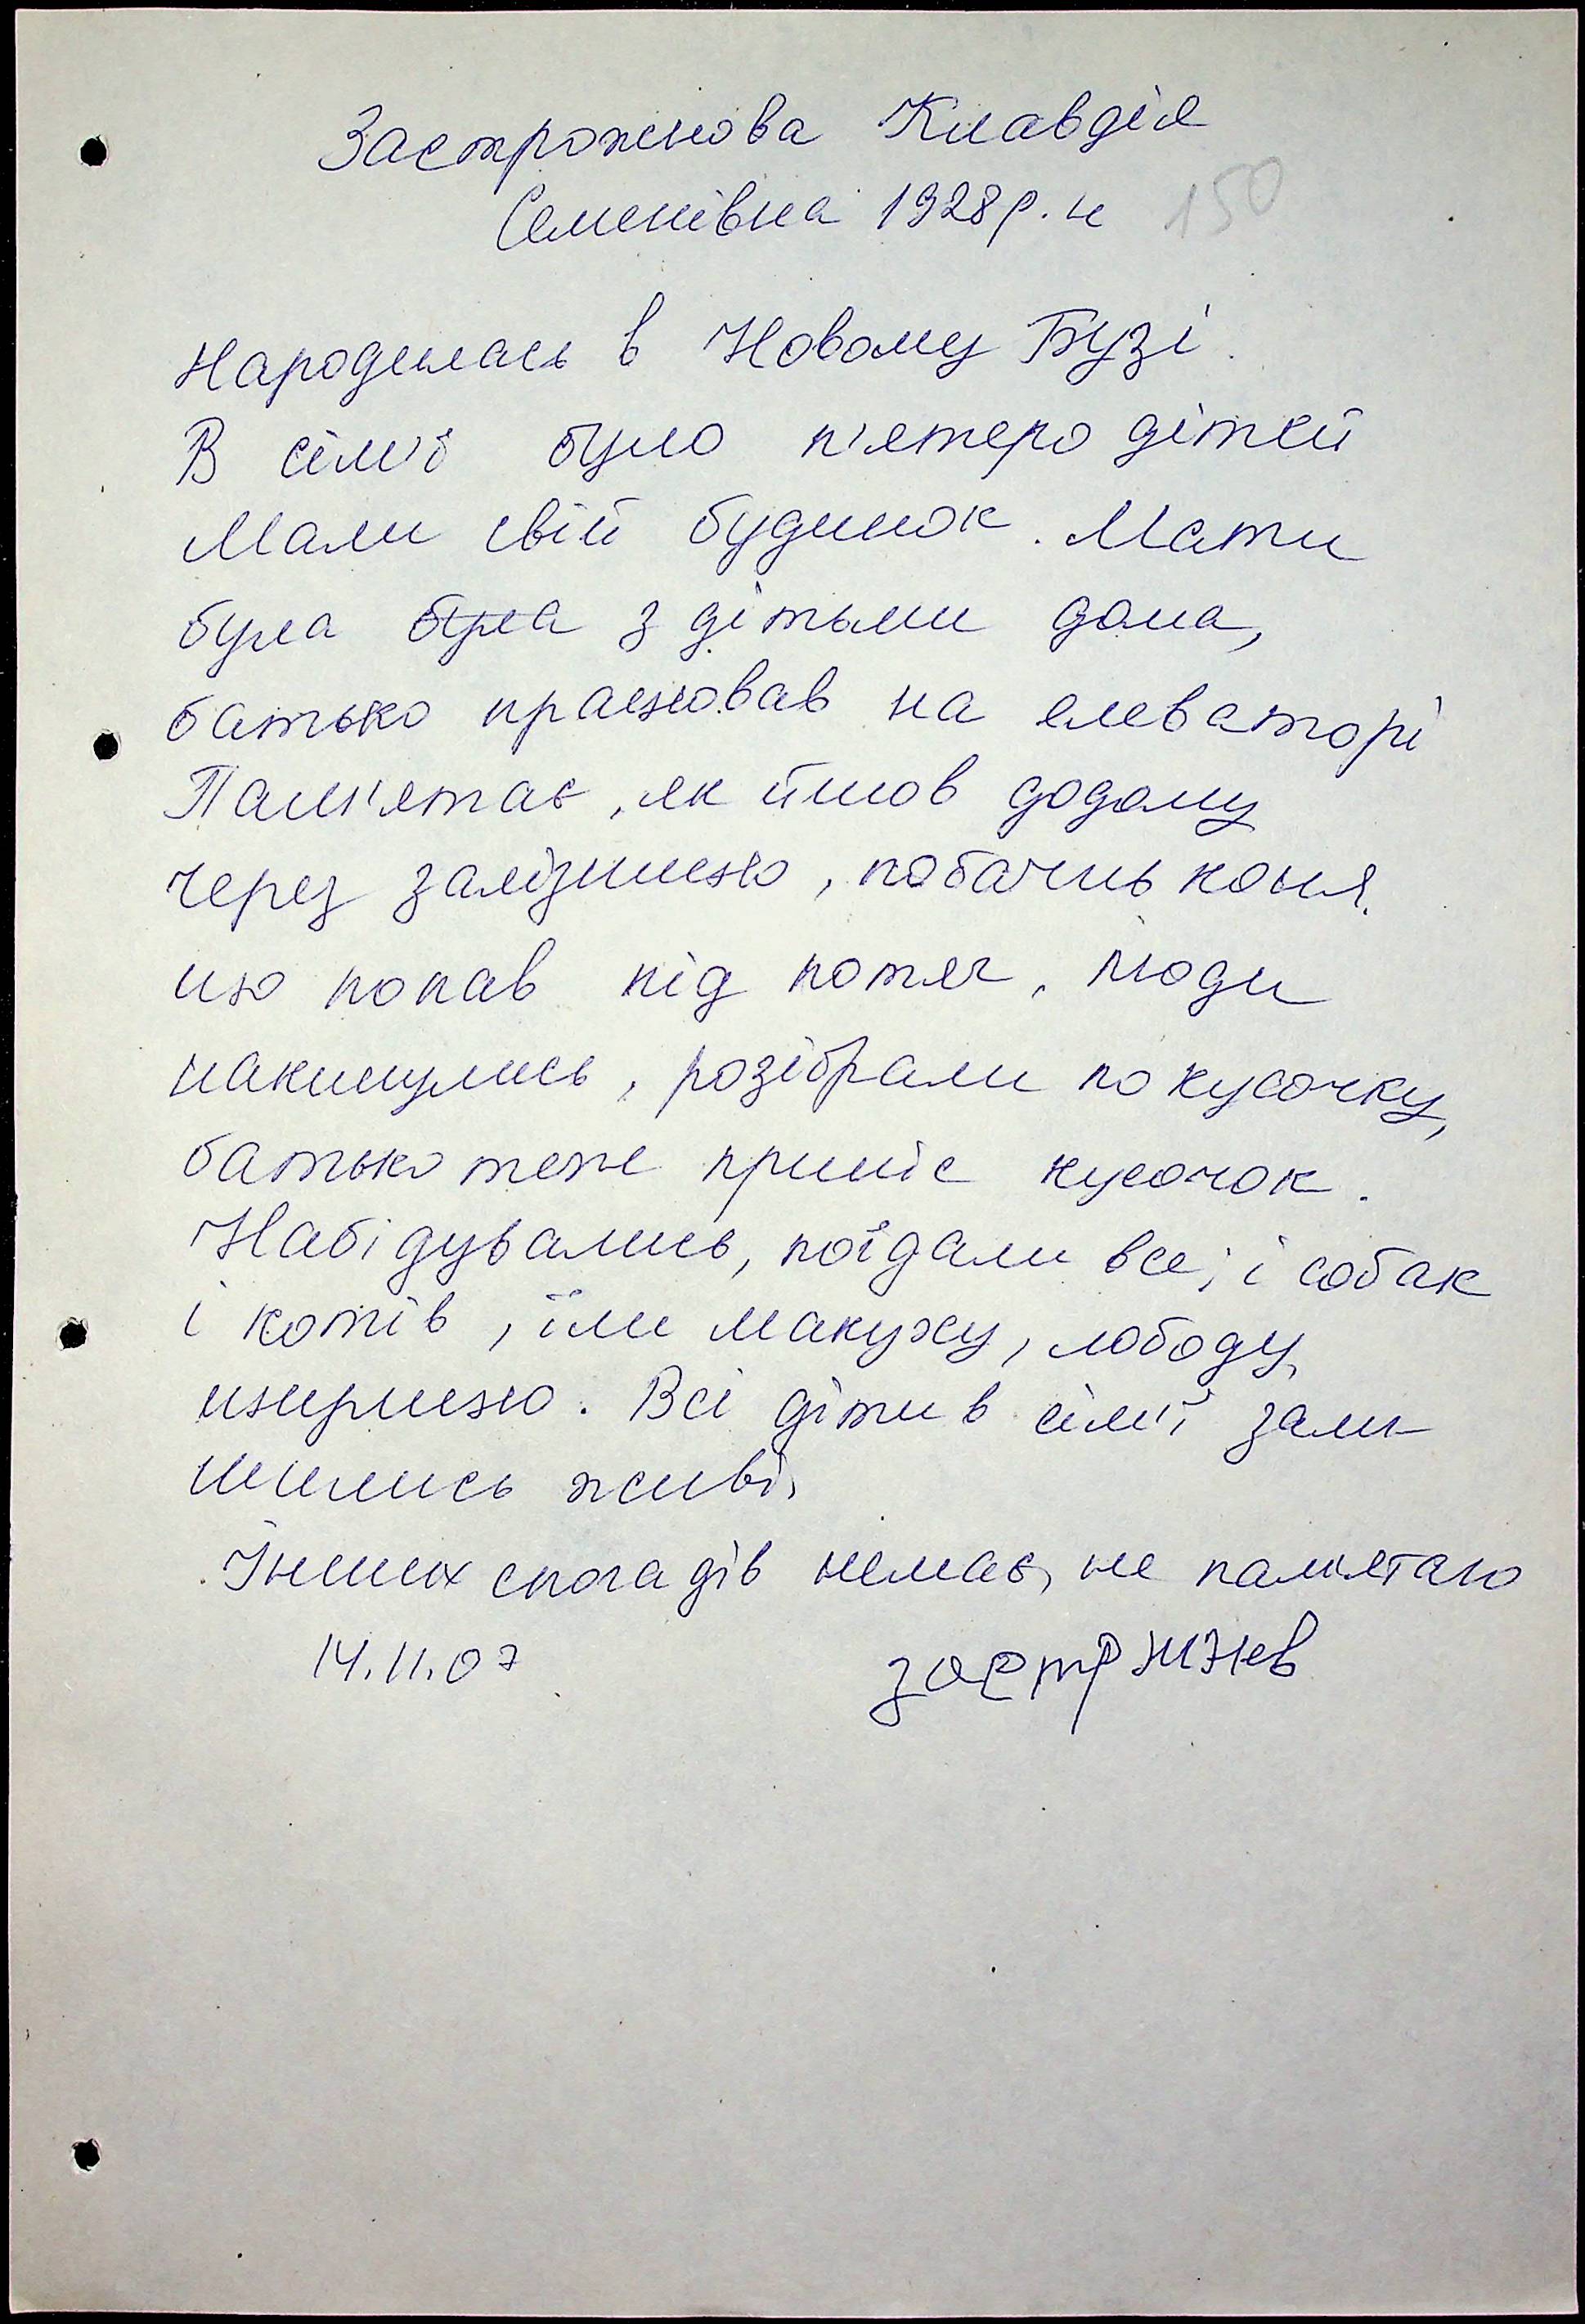 Застрожнова Клавдія
Семенівна 1928 р. н 150
Народилась в Новому Бузі.
В сім'ї було п'ятеро дітей
Мали свій будинок. Мати
була була з дітьми дома,
батько працював на елеваторі
Пам'ятає, як йшов додому
через залізницю, побачив коня,
що попав під потяг, люди
накинулись, розібрали по кусочку,
батько теж приніс кусочок.
Набідувались, поїдали все; і собак
і котів, їли макуху, лободу,
щирицю. Всі діти в сім'ї зали-
шились живі.
Інших спогадів немає, не пам'ятаю
14.11.07